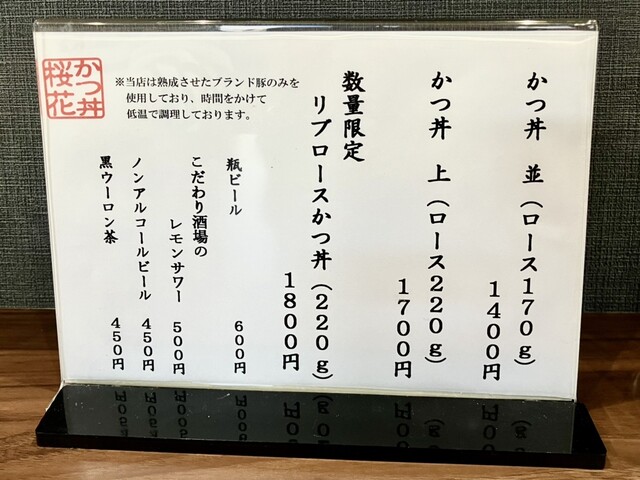 かつ丼 並（ロース170ｇ）
1400円
かつ丼 上（ロース220ｇ）
1700円
数量限定
リブロースかつ丼（220ｇ）
1800円
かつ丼
桜花
※当店は熟成させたブランド豚のみを
使用しており、時間をかけて
低温で調理しております。
瓶ビール 600円
こだわり酒場の
レモンサワー 500円
ノンアルコールビール 450円
黒ウーロン茶 450円